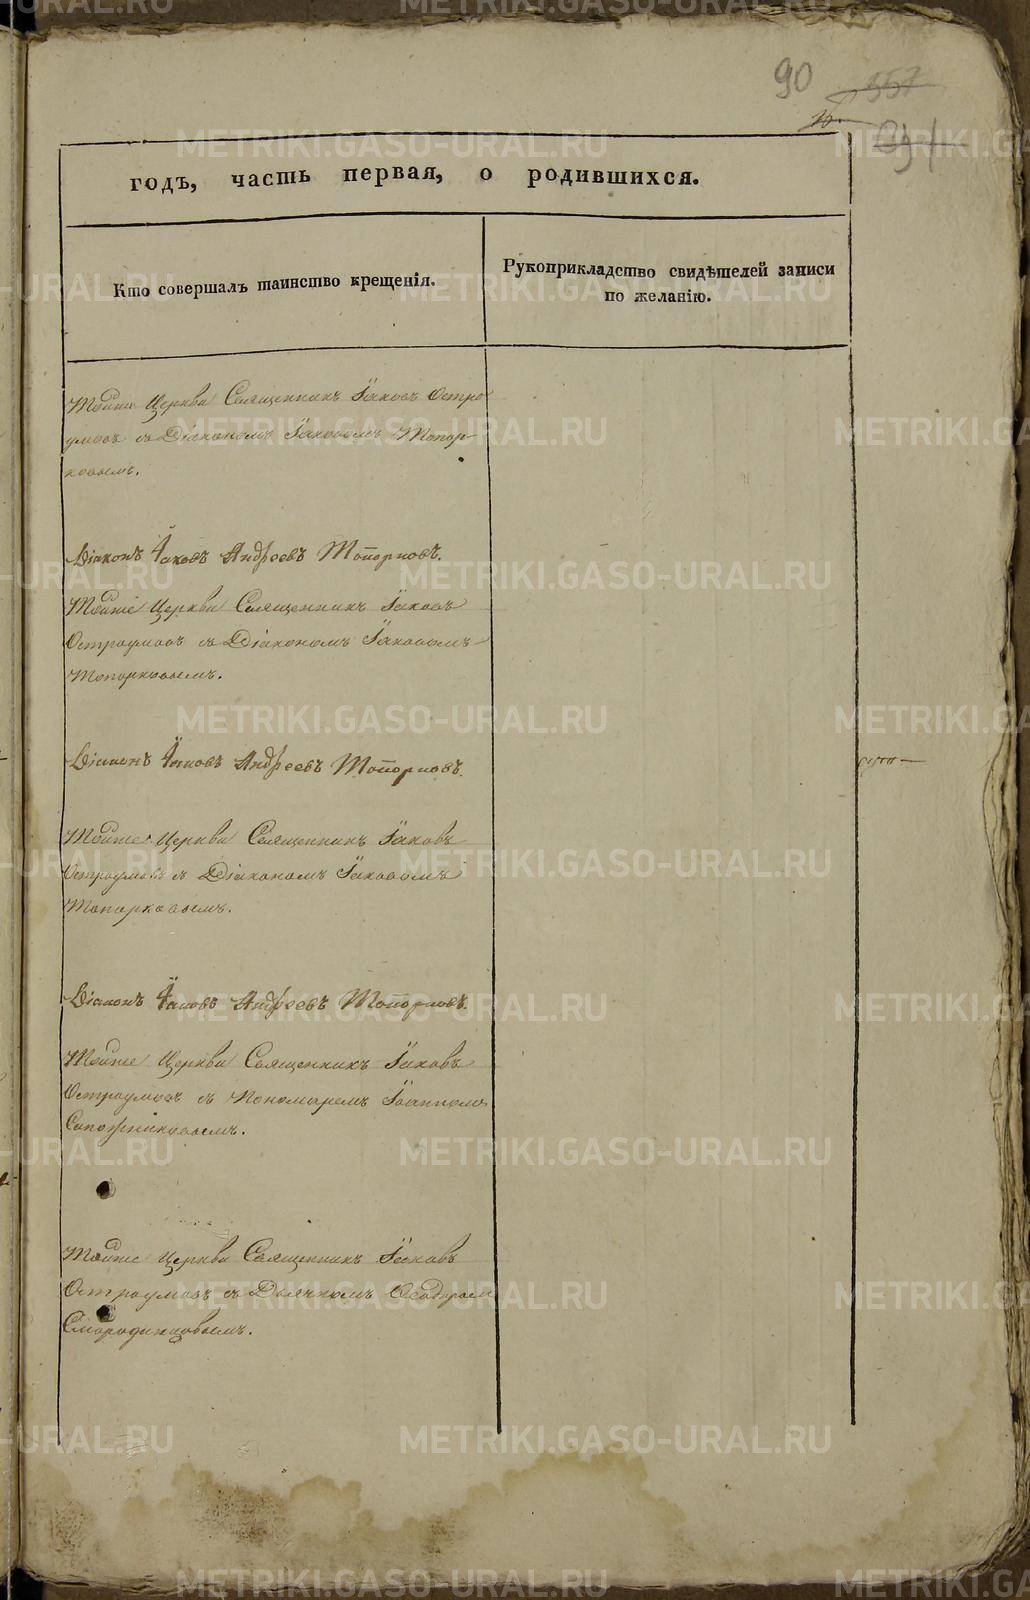 90
557
годъ, часть первая, о родившихся.
Кто совершалъ таинство крещенія.
Рукоприкладство свидѣтелей записи
по желанію.
Тойже Церкви Священникъ Іаковъ Остро
умовъ съ Діакономъ Іаковомъ Топор-
ковымъ.
Діаконъ Іаковъ Андреевъ Топорковъ.
Тойже Церкви Священникъ Іаковъ
Остроумовъ съ Діакономъ Іаковомъ
Топорковымъ.
Діаконъ Іаковъ Андреевъ Топорковъ.
Тойже Церкви Священникъ Іаковъ
Остроумовъ съ Діакономъ Іаковомъ
Топорковымъ.
Діаконъ Іаковъ Андреевъ Топорковъ.
Тойже Церкви Священникъ Іаковъ
Остроумовъ съ Пономаремъ Іоанномъ
Сапожниковымъ.
Тойже Церкви Священникъ Іаковъ
Остроумовъ съ Дьячкомъ Ѳедоромъ
Смородинцовымъ.
METRIKI.GASO-URAL.RU